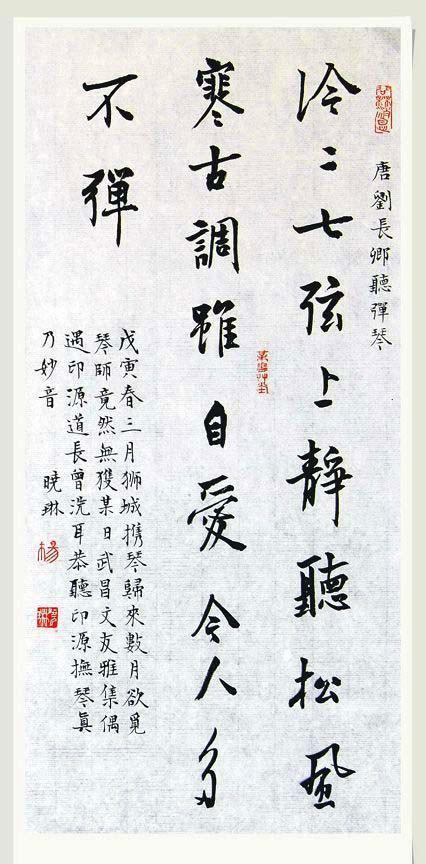 唐劉長卿聽彈琴
泠〻七弦上靜聽松風
寒古調雖自愛今人多
不彈
戊寅春三月狮城携琴歸來數月欲覓
琴師竟然無獲某日武昌文友雅集偶
遇印源道長曾洗耳恭聽印源撫琴眞
乃妙音
曉琳
楊